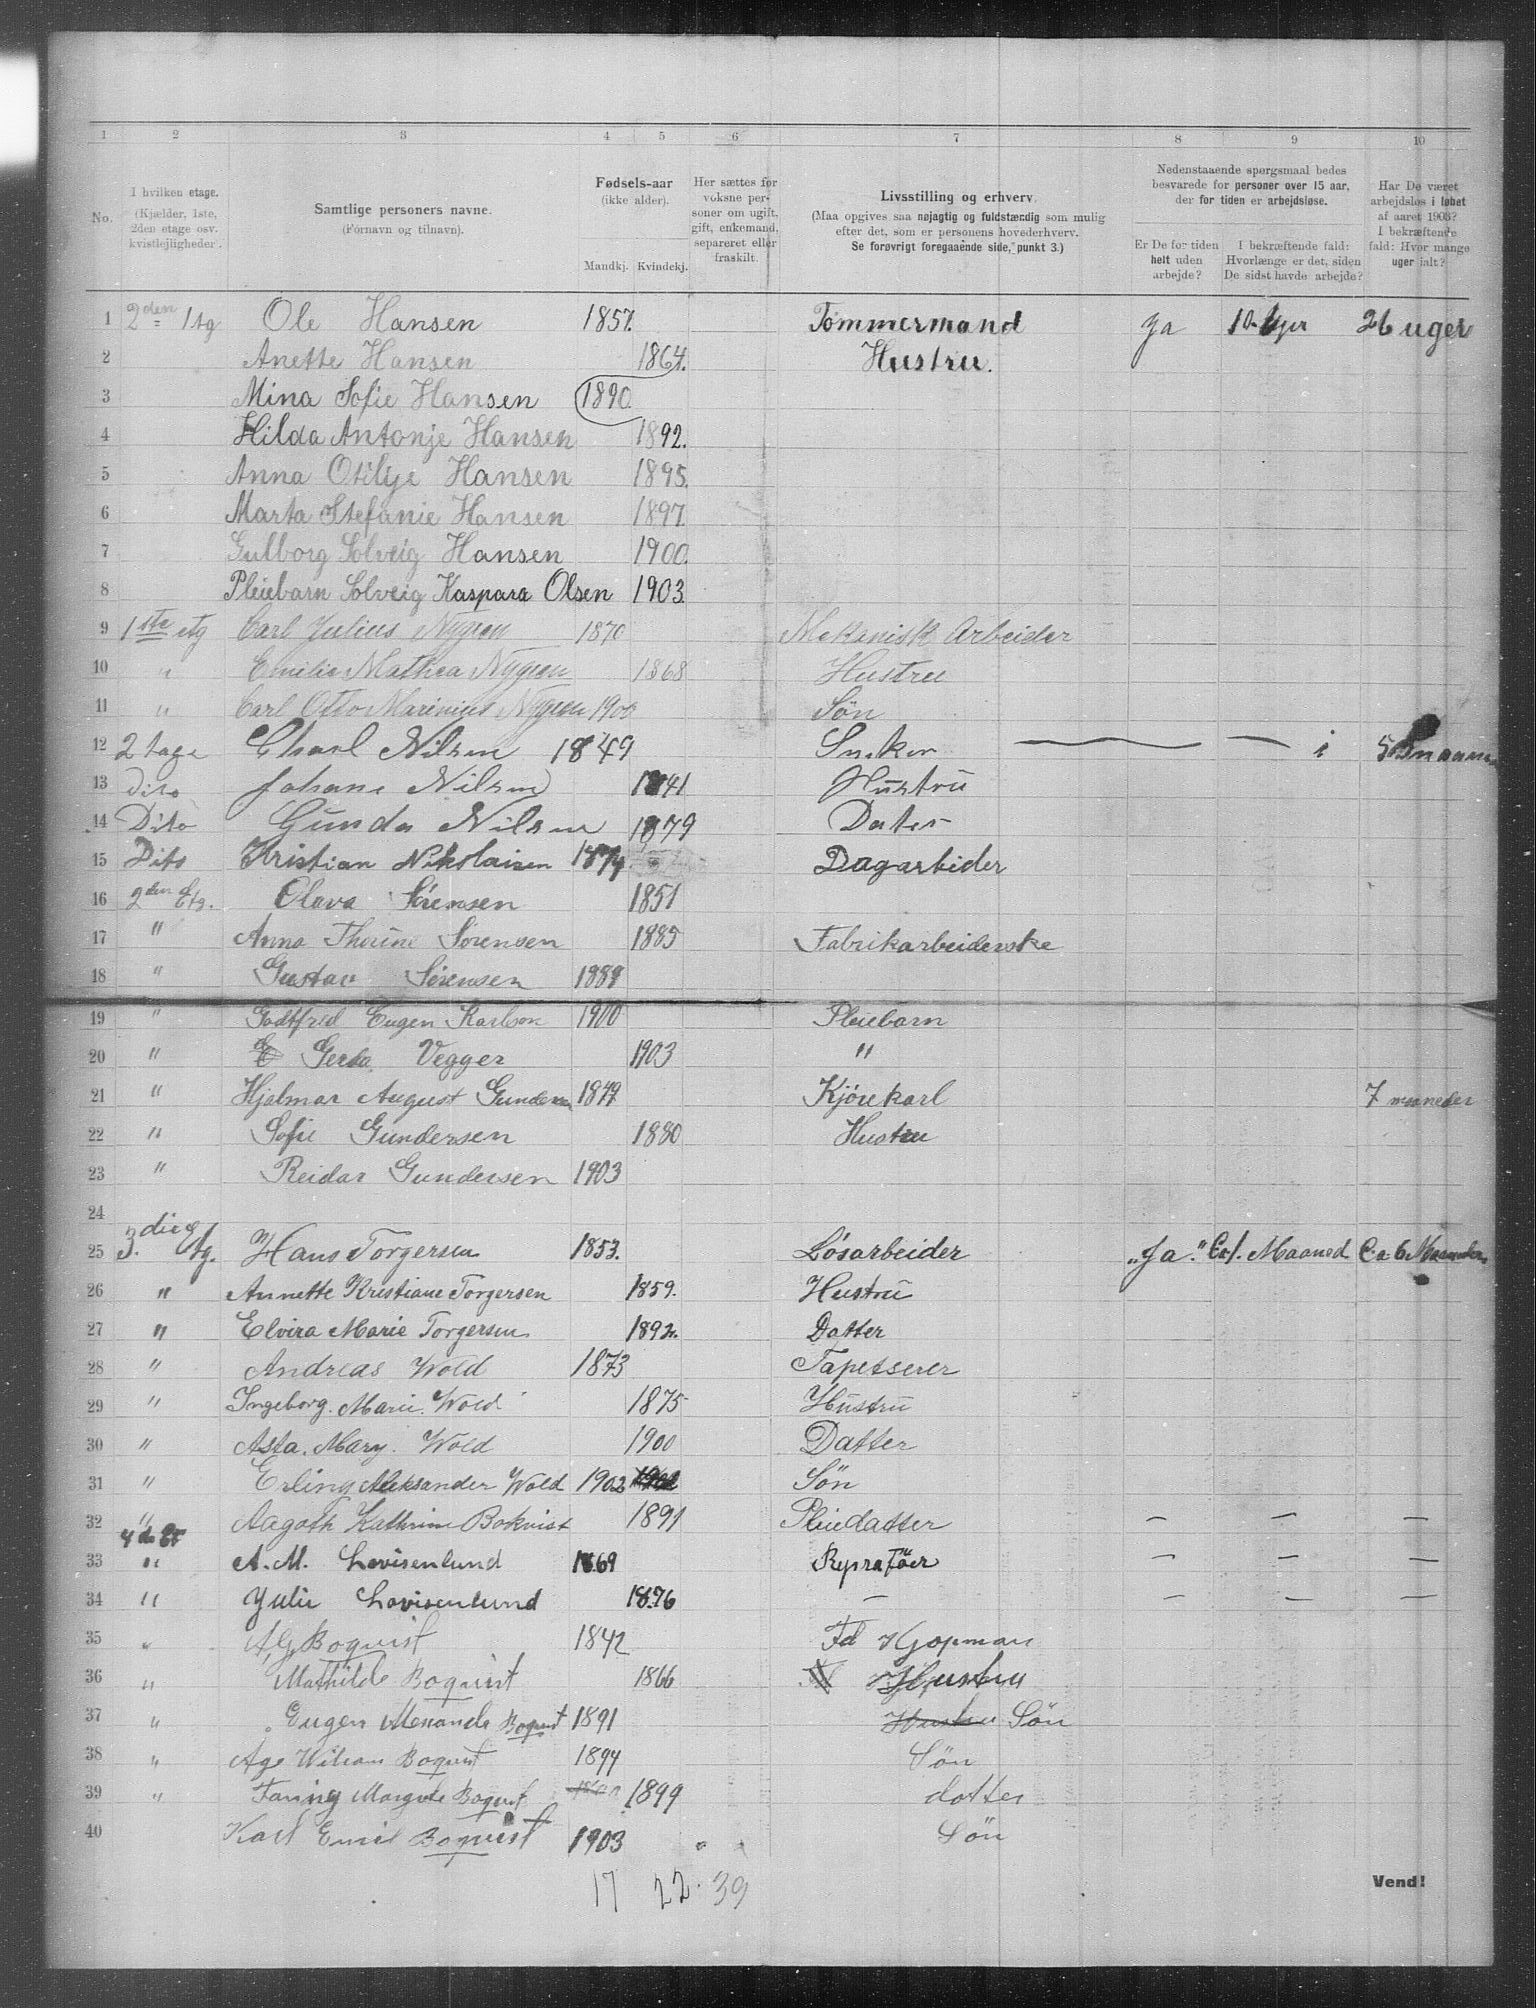 1 2 3 4 5 6 7 8 9 10
No.
I hvilken etage.
(Kjælder, 1ste,
2den etage osv.
kvistlejligheder.
Samtlige personers navne.
(Fornavn og tilnavn).
Fødsels-aar
(ikke alder).
Mandkj. Kvindekj.
Her sættes for
voksne per-
soner om ugift,
gift, enkemand,
separeret eller
fraskilt.
Livsstilling og erhverv.
(Maa opgives saa nøjagtig og fuldstændig som mulig
efter det, som er personens hovederhverv.
Se forøvrigt foregaaende side, punkt 3.)
Nedenstaaende spørgsmaal bedes
besvarede for personer over 15 aar,
der for tiden er arbejdsløse.
Er De for tiden
helt uden
arbejde?
I bekræftende fald:
Hvorlænge er det, siden
De sidst havde arbejde?
Har De været
arbejdsløs i løbet
af aaret 1903?
I bekræftende
fald: Hvor mange
uger ialt?
1 2den Etg Ole Hansen 1857. Tømmermand Ja 10. 26 uger
2 Anette Hansen 1864. Hustru.
3 Mina Sofie Hansen 1890
4 Hilda Antonje Hansen 1892.
5 Anna Otilije Hansen 1895.
6 Marta Stefanie Hansen 1897
7 Gulborg Solveig Hansen 1900.
8 Pleiebarn Solveig Kaspara Olsen 1903.
9 1ste etg Carl Julius Nygren 1870 Mekanisk Arbeider
10 " Emilie Mathea Nygren 1868 Hustru
11 " Carl Otto Marinius Nygren 1900 Søn
12 2 tage Charl Nilsen 1849 Sneker i 5
13 Dito Johane Nilsen 1841 Hustru
14 Dito Gunda Nilsen 1879 Dater
15 Dito Kristian Nikolaisen 1874 Dagarbider
16 2den Etg. Olava Sørensen 1851
17 " Anna Thorine Sørensen 1885 Fabrikarbeiderske
18 " Gustav Sørensen 1889
19 " Godtfred Eugen Karlson 1900 Pleiebarn
20 " Gerda Vegger 1903 "
21 " Hjalmar August Gundersen 1877 Kjørekarl 7 maaneder
22 " Sofie Gundersen 1880 Hustru
23 " Reidar Gundersen 1903
24
25 3die Etg. Hans Torgersen 1853. Løsarbeider „Ja." Ca 1. Maaned Ca 6 Maaneder
26 " Annette Kristiane Torgersen 1859. Hustru
27 " Elvira Marie Torgersen 1892. Datter
28 " Andreas Wold 1873 Tapetserer
29 " Ingeborg. Marie. Wold 1875 Hustru
30 " Asta. Mary. Wold 1900 Datter
31 " Erling Aleksander Wold 1902 1902 Søn
32 " Aagoth Kathrine Bokvist 1891 Pleiedatter — — —
4de Et
33 " A. M. Lovisenlund 1869 Reprafør — — —
34 " Yulie Lovisenlund 1876 — — — —
35 " A G Boquist 1842 Fd Kjøpman
36 " Mathilde Boquist 1866 Hustru
37 " Eugen Alexander Boquist 1891 Hustru Søn
38 " Age Wiliam Boquist 1894 Søn
39 " Fanny Margrete Boquist 1899 dotter
40 Karl Emil Boquist 1903 Søn
17 22. 39
Vend!